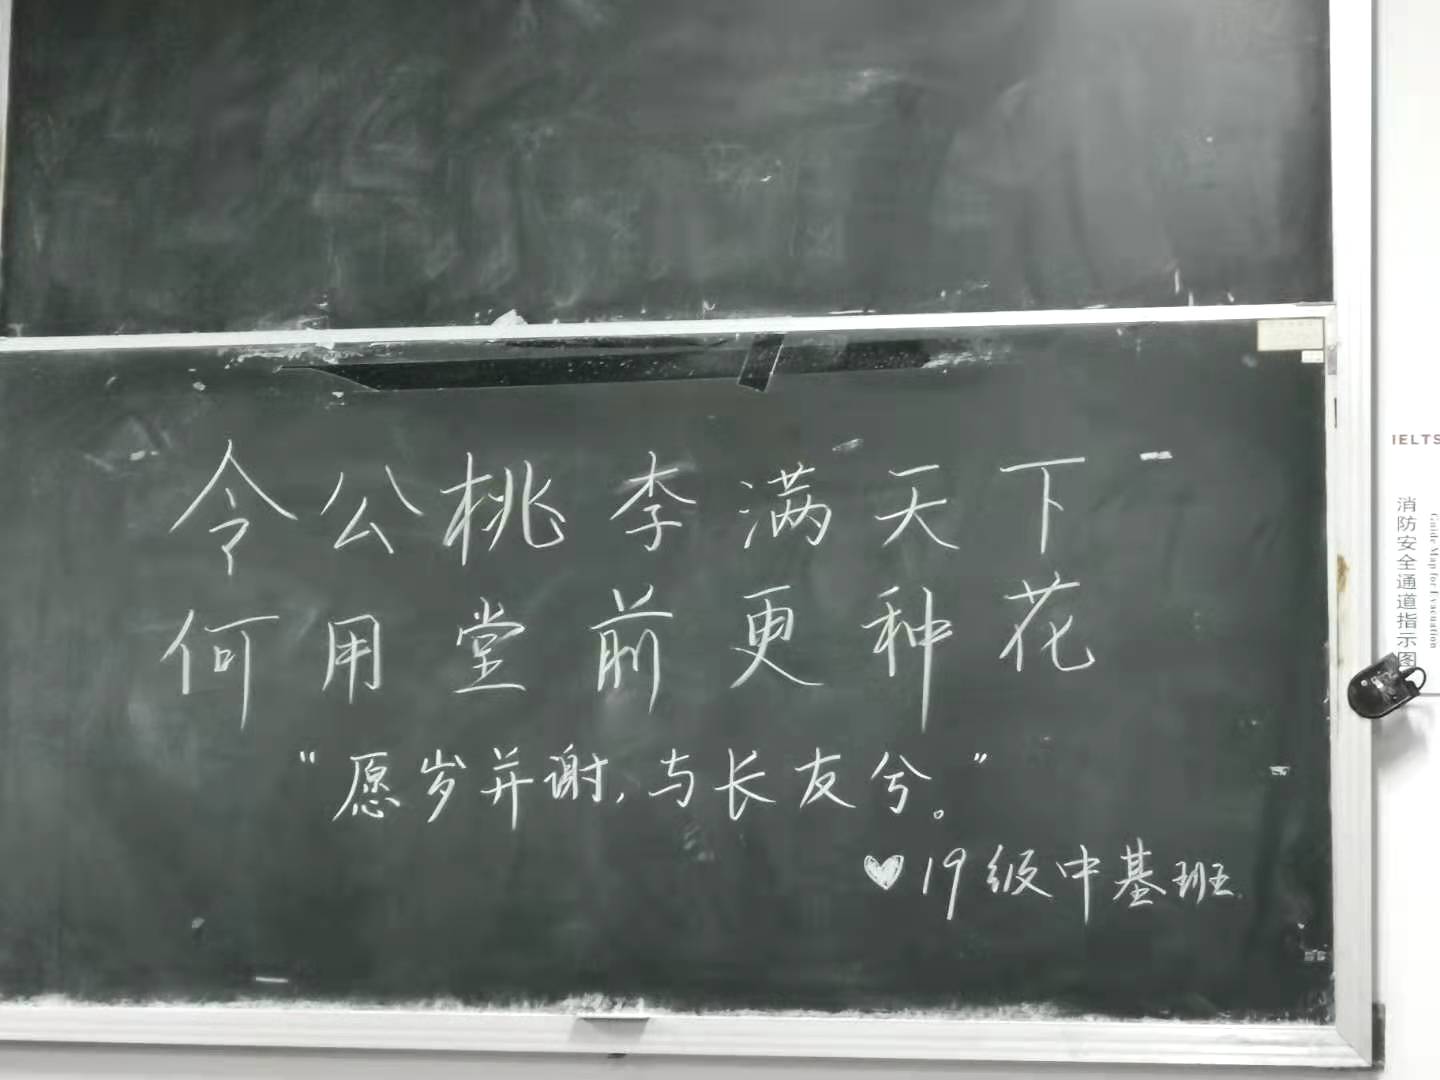 令公桃李满天下
何用堂前更种花
"愿岁并谢,与长友兮。"
♥19级中基班
IELTS
消防安全通道指示图
Guide Map for Evacuation